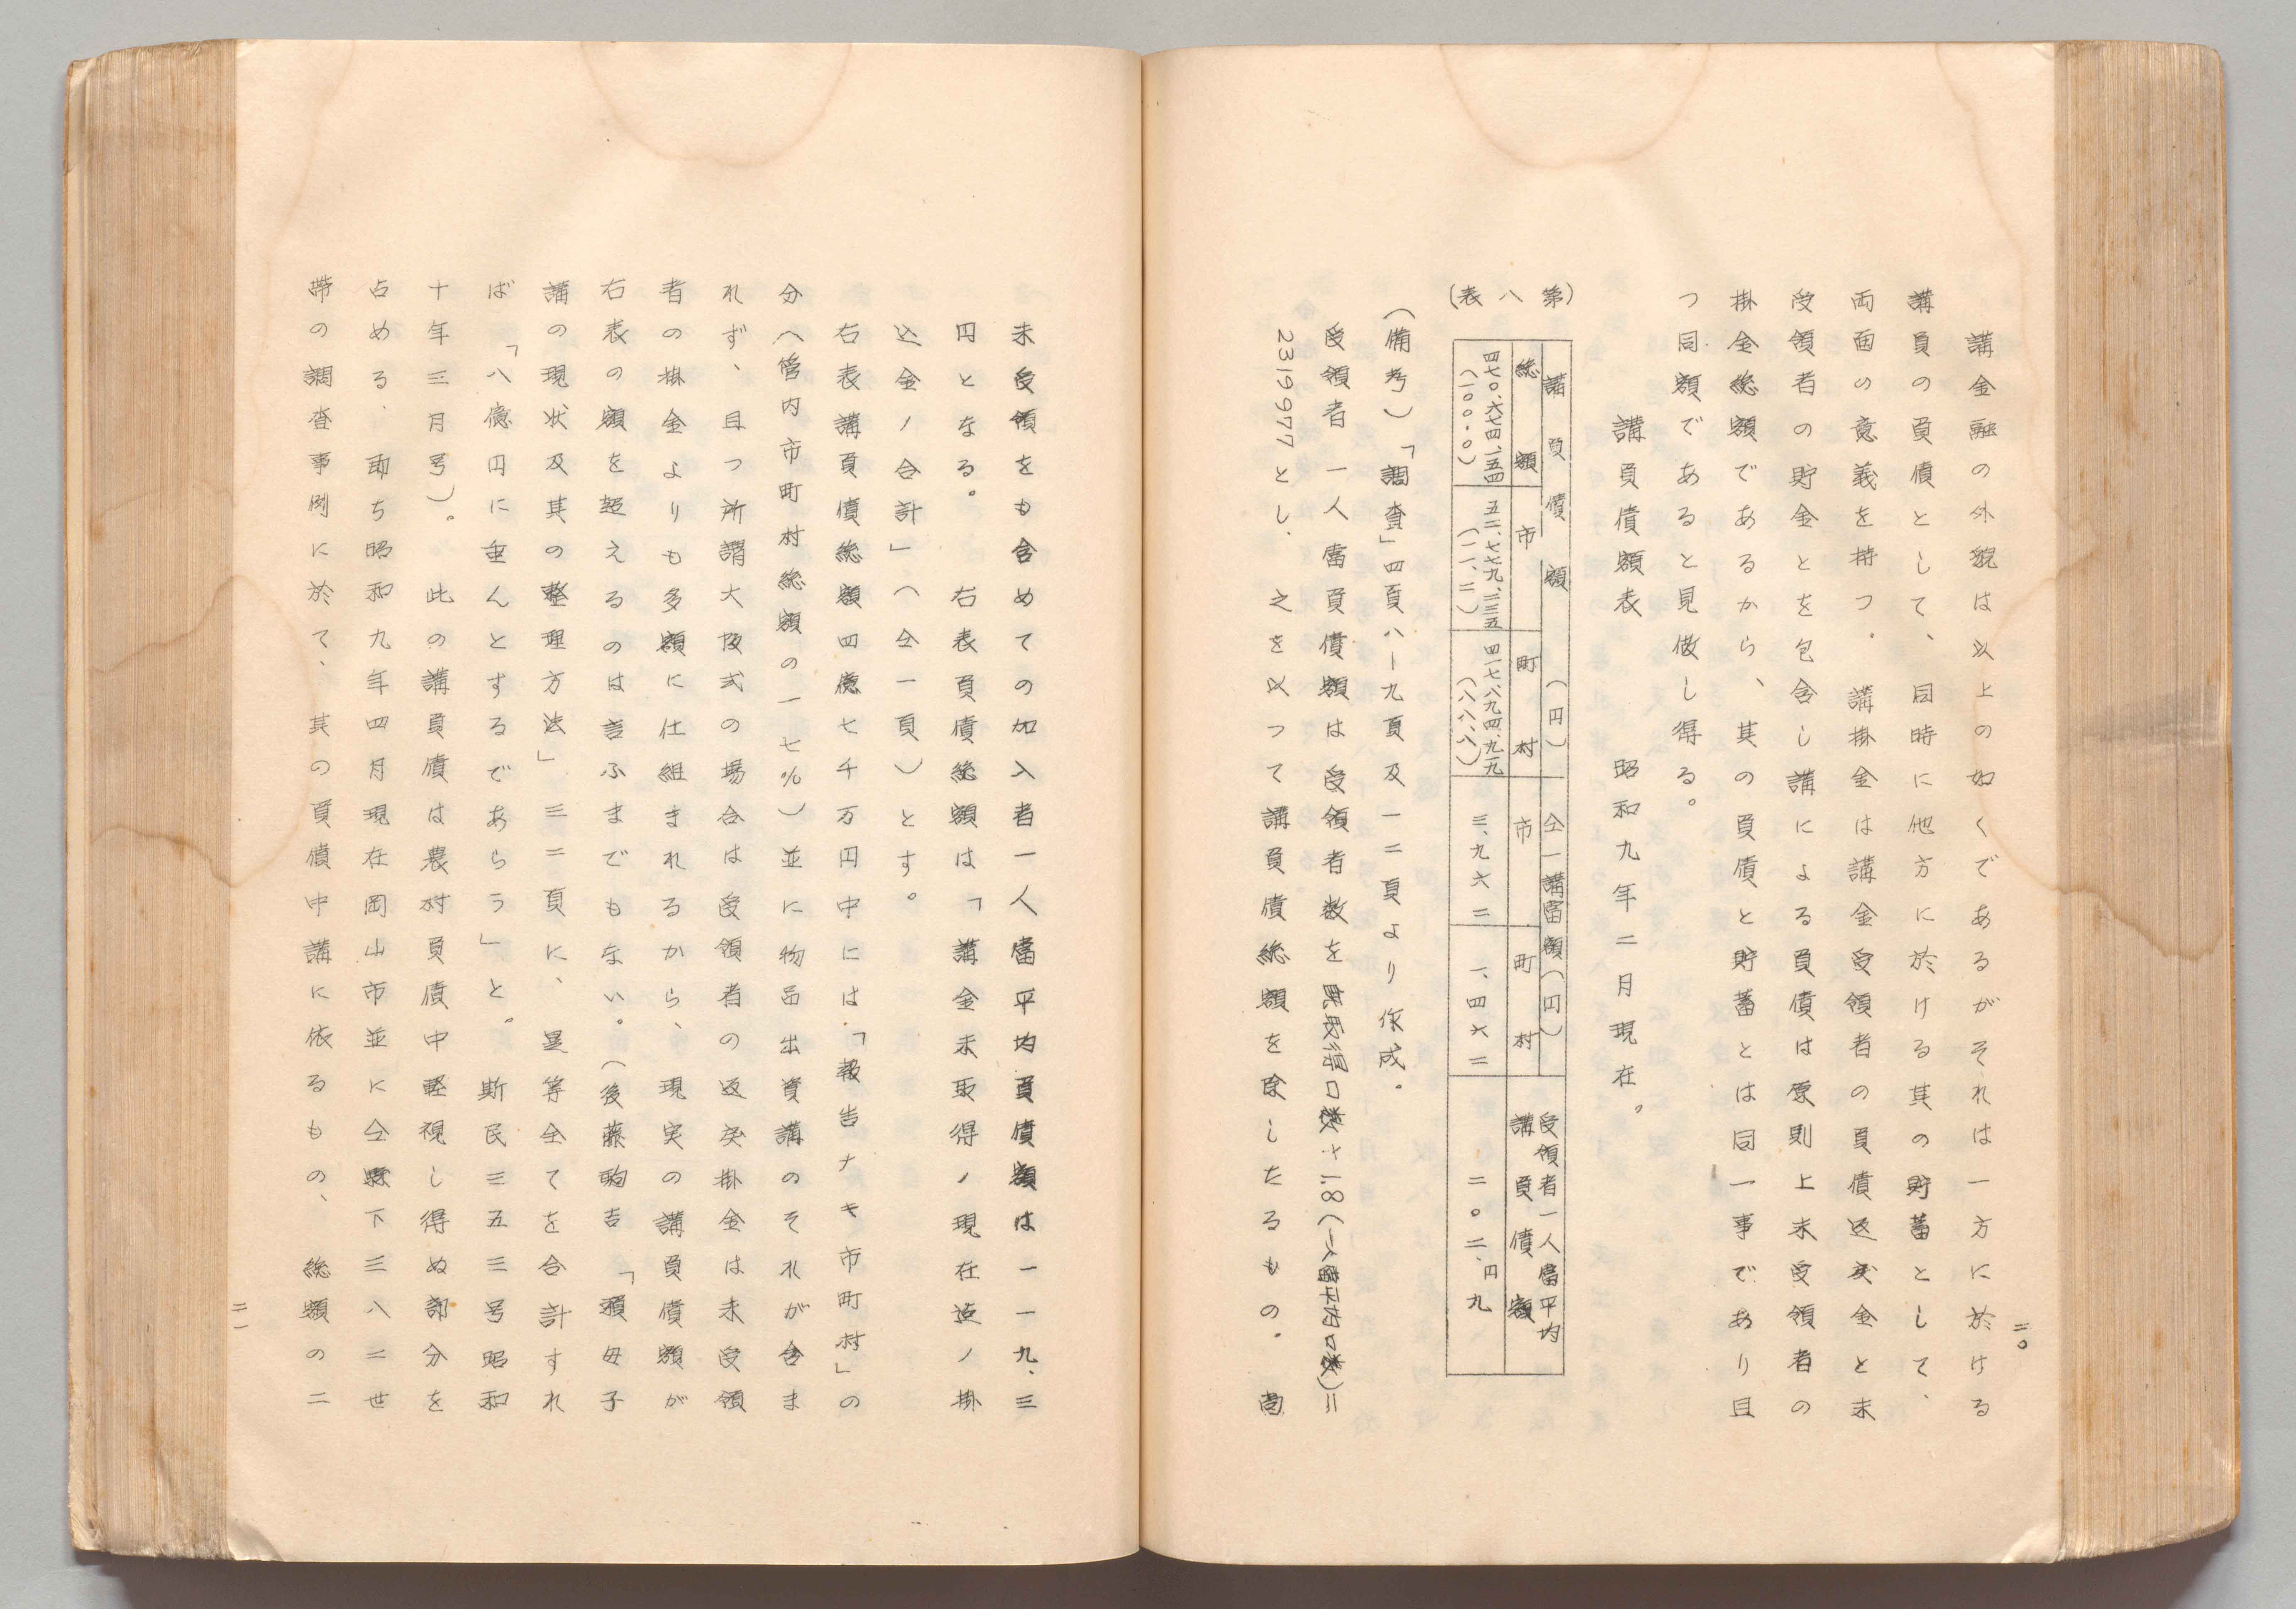 二〇
講金融の外貌は以上の如くであるがそれは一方に於ける
講員の負債として、同時に他方に於ける其の貯蓄として、
両面の意義を持つ．講掛金は講金受領者の負債返戻金と未
受領者の貯金とを包含し講による負債は原則上未受領者の
掛金総額であるから、其の負債と貯蓄とは同一事であり且
つ同額であると見做し得る。
講負債額表　昭和九年二月現在。
（第八表）
講負債額（円）　仝一講當額（円）　受領者一人當平均
総額　市　町村　市　町村　講負債額
四七〇、六七四、一五四　五二、七七九、二三五　四一七、八九四、九一九　三、九六二　一、四六二　二〇二、円九
（一〇〇・〇）　（一一、二）　（八八、八）
（備考）「調査」四頁八ー九頁及一二頁より作成。
受領者一人當負債額は受領者数を既取得口数÷1.8(一人當平均口数)＝
2319977とし．之を以つて講負債総額を除したるもの．尚
未受領をも含めての加入者一人當平均負債額は一一九、三
円となる。右表負債総額は「講金未取得ノ現在迄ノ掛
込金ノ合計」（仝一頁）とす。
右表講負債総額四億七千万円中には「報告ナキ市町村」の
分（管内市町村総額の一七％）並に物品出資講のそれが含ま
れず、且つ所謂大阪式の場合は受領者の返戻掛金は未受領
者の掛金よりも多額に仕組まれるから、現実の講負債額が
右表の額を超えるのは言ふまでもない。（後藤駒吉「頼母子
講の現状及其の整理方法」三二頁に、是等全てを合計すれ
ば「八億円に垂んとするであらう」と。斯民三五三号昭和
十年三月号）。此の講負債は農村負債中軽視し得ぬ部分を
占める．即ち昭和九年四月現在岡山市並に仝縣下三八二世
帯の調査事例に於て、其の負債中講に依るもの、総額の二
二一